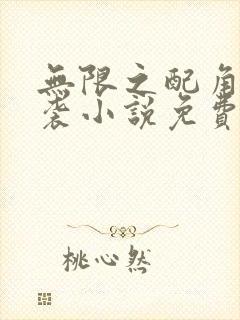 無限之配角
袭小說免費
桃心然